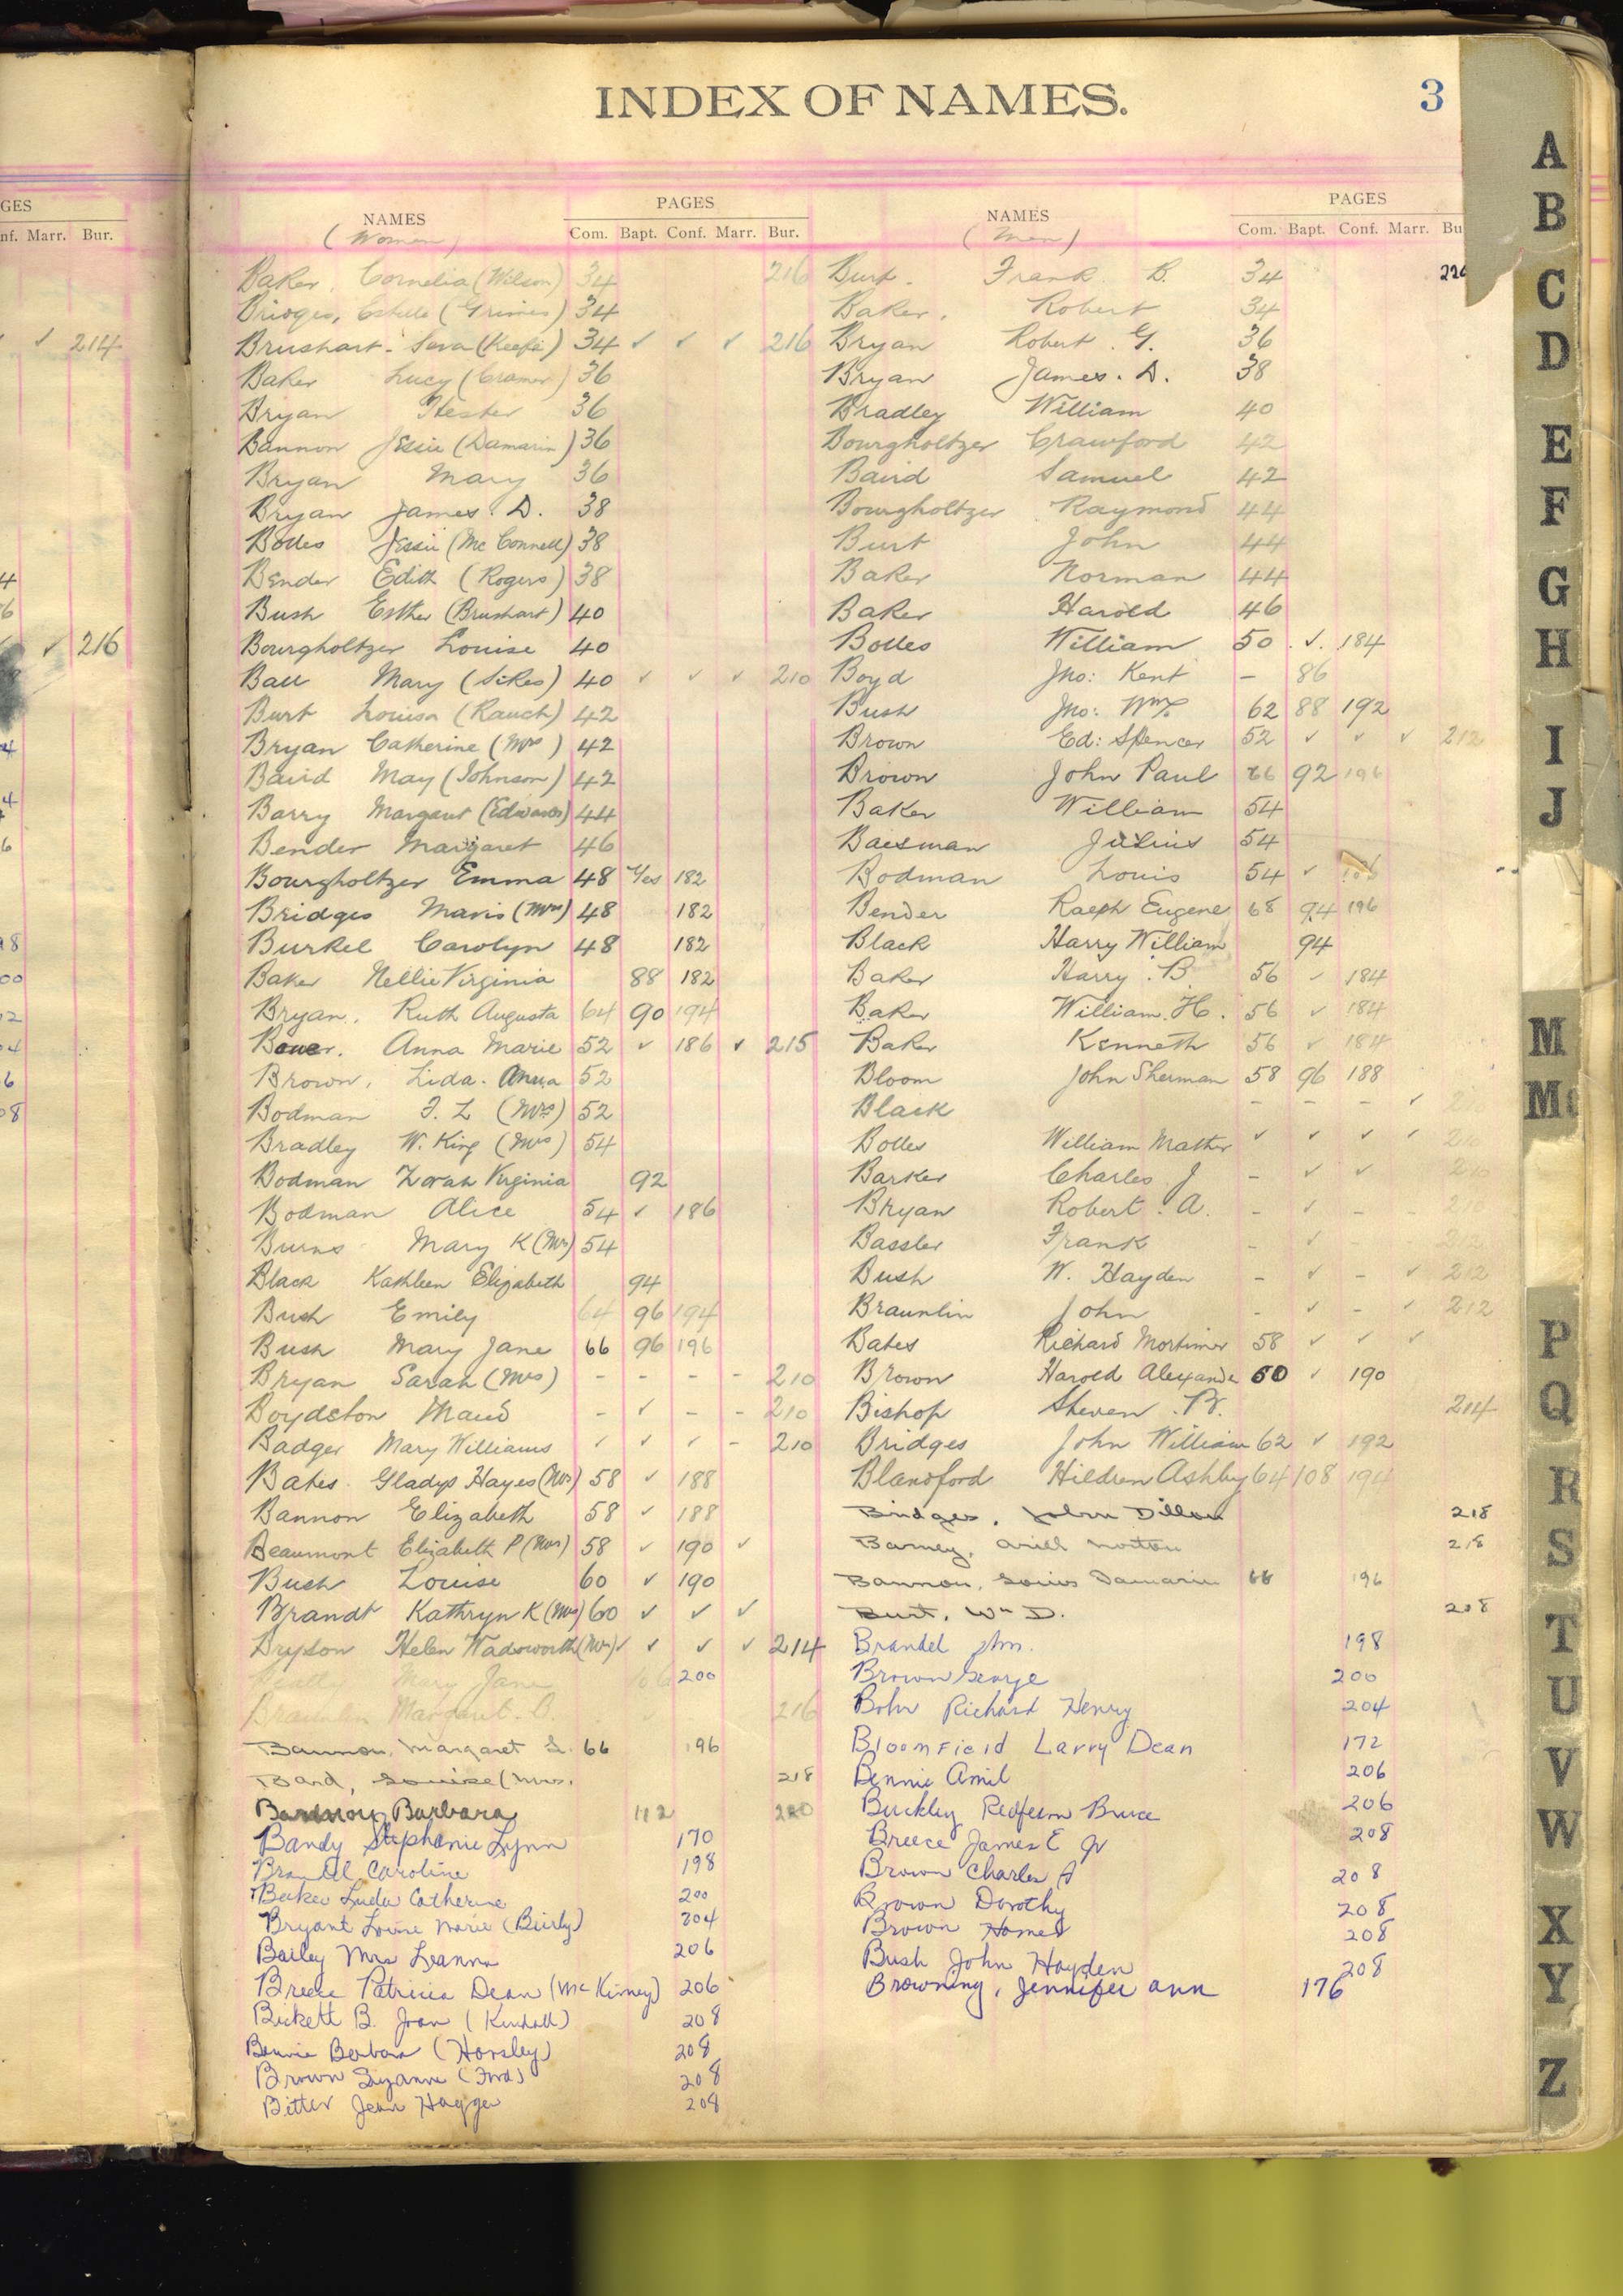 INDEX OF NAMES.
3
GES
nf. Marr. Bur.
✓ 214
✓ 216
NAMES
(Women)
PAGES
Com. Bapt. Conf. Marr. Bur.
Baker, Cornelia (Wilson) 34 216
Bridges, Estelle (Grimes) 34
Brushart - (Keefe) 34 ✓ ✓ ✓ 216
Baker Lucy (Cramer) 36
Bryan Hester 36
Bannon Jessie (Damarin) 36
Bryan Mary 36
Bryan James. D. 38
Bolles Jessie (Mc Connell) 38
Bender Edith (Rogers) 38
Bush Esther (Brushart) 40
Bourgholtzer Louise 40
Ball Mary (Sikes) 40 ✓ ✓ ✓ 210
Burt Louisa (Rauch) 42
Bryan Catherine (Mrs) 42
Baird May (Johnson) 42
Barry Margaret (Edwards) 44
Bender Margaret 46
Bourgholtzer Emma 48 Yes 182
Bridges Mavis (Mrs) 48 182
Burkel Carolyn 48 182
Baker Nellie Virginia 88 182
Bryan, Ruth Augusta 64 90 194
Anna Marie 52 ✓ 186 ✓ 215
Brown, Lida. Anna 52
Bodman F. L (Mrs) 52
Bradley W. King (Mrs) 54
Bodman Zorah Virginia 92
Bodman Alice 54 ✓ 186
Burns Mary K (Mrs) 54
Black Kathleen Elizabeth 94
Bush Emily 64 96 194
Bush Mary Jane 66 96 196
Bryan Sarah (Mrs) - - - - 210
Boydston Maud - ✓ - - 210
Badger Mary Williams ✓ ✓ ✓ - 210
Bates Gladys Hayes (Mrs) 58 ✓ 188
Bannon Elizabeth 58 ✓ 188
Beaumont Elizabeth P (Mrs) 58 ✓ 190 ✓
Bush Louise 60 ✓ 190
Brandt Kathryn K (Mrs) 60 ✓ ✓ ✓
Bryson Helen Wadsworth (Mrs) ✓ ✓ ✓ ✓ 214
Mary Jane 106 200
Braunlin Margaret. B. 216
Bannon, Margaret L. 66 196
Bard, Louise (Mrs. 218
Barbara 112 220
Bandy Stephanie Lynn 170
Brandel Caroline 198
Baker Catherine 200
Bryant Louise Marie (Bierly) 204
Bailey Mrs Leanna 206
Breece Patricia Dean (McKinney) 206
Bickett B. Joan (Kendall) 208
Barbara (Horsley) 208
Brown Suzanne (Ford) 208
Bitter Jean Hagger 208
NAMES
(Men)
PAGES
Com. Bapt. Conf. Marr. Bu
Burt. Frank B. 34 220
Baker, Robert 34
Bryan Robert. G. 36
Bryan James. D. 38
Bradley William 40
Bourgholtzer Crawford 42
Baird Samuel 42
Bourgholtzer Raymond 44
Burt John 44
Baker Norman 44
Baker Harold 46
Bolles William 50 ✓ 184
Boyd Jno: Kent - 86
Bush Jno: Wm. 62 88 192
Brown Ed: Spencer 52 ✓ ✓ ✓ 212
Brown John Paul 66 92 196
Baker William 54
Baesman Julius 54
Bodman Louis 54 ✓
Bender Ralph Eugene 68 94 196
Black Harry William 94
Baker Harry. B. 56 ✓ 184
Baker William. H. 56 ✓ 184
Baker Kenneth 56 ✓ 184
Bloom John Sherman 58 96 188
Black - - - ✓
Bolles William Mather ✓ ✓ ✓ ✓ 210
Barker Charles J - ✓ ✓ 210
Bryan Robert. A. - ✓ - - 210
Bassler Frank - ✓ - -
Bush W. Hayden - ✓ - ✓ 212
Braunlin John - ✓ - ✓ 212
Bates Richard Mortimer 58 ✓ ✓ ✓
Brown Harold Alexander 60 ✓ 190
Bishop Steven. B. 214
Bridges John William 62 ✓ 192
Blandford Hildren Ashby 64 108 194
Bridges, John Dillon 218
Barney, Ariel Norton 218
Bannon, Louis Damarin 68 196
Burt, Wm D. 208
Brandel Jhn. 198
Brown George 200
Bohr Richard Henry 204
Bloomfield Larry Dean 172
Bennie Amil 206
Buckley Redfern Bruce 206
Breece James E Jr 208
Brown Charles A 208
Brown Dorothy 208
Brown Homer 208
Bush John Hayden 208
Browning, Jennifer Ann 176
A
B
C
D
E
F
G
H
I
J
M
Mc
P
Q
R
S
T
U
V
W
X
Y
Z